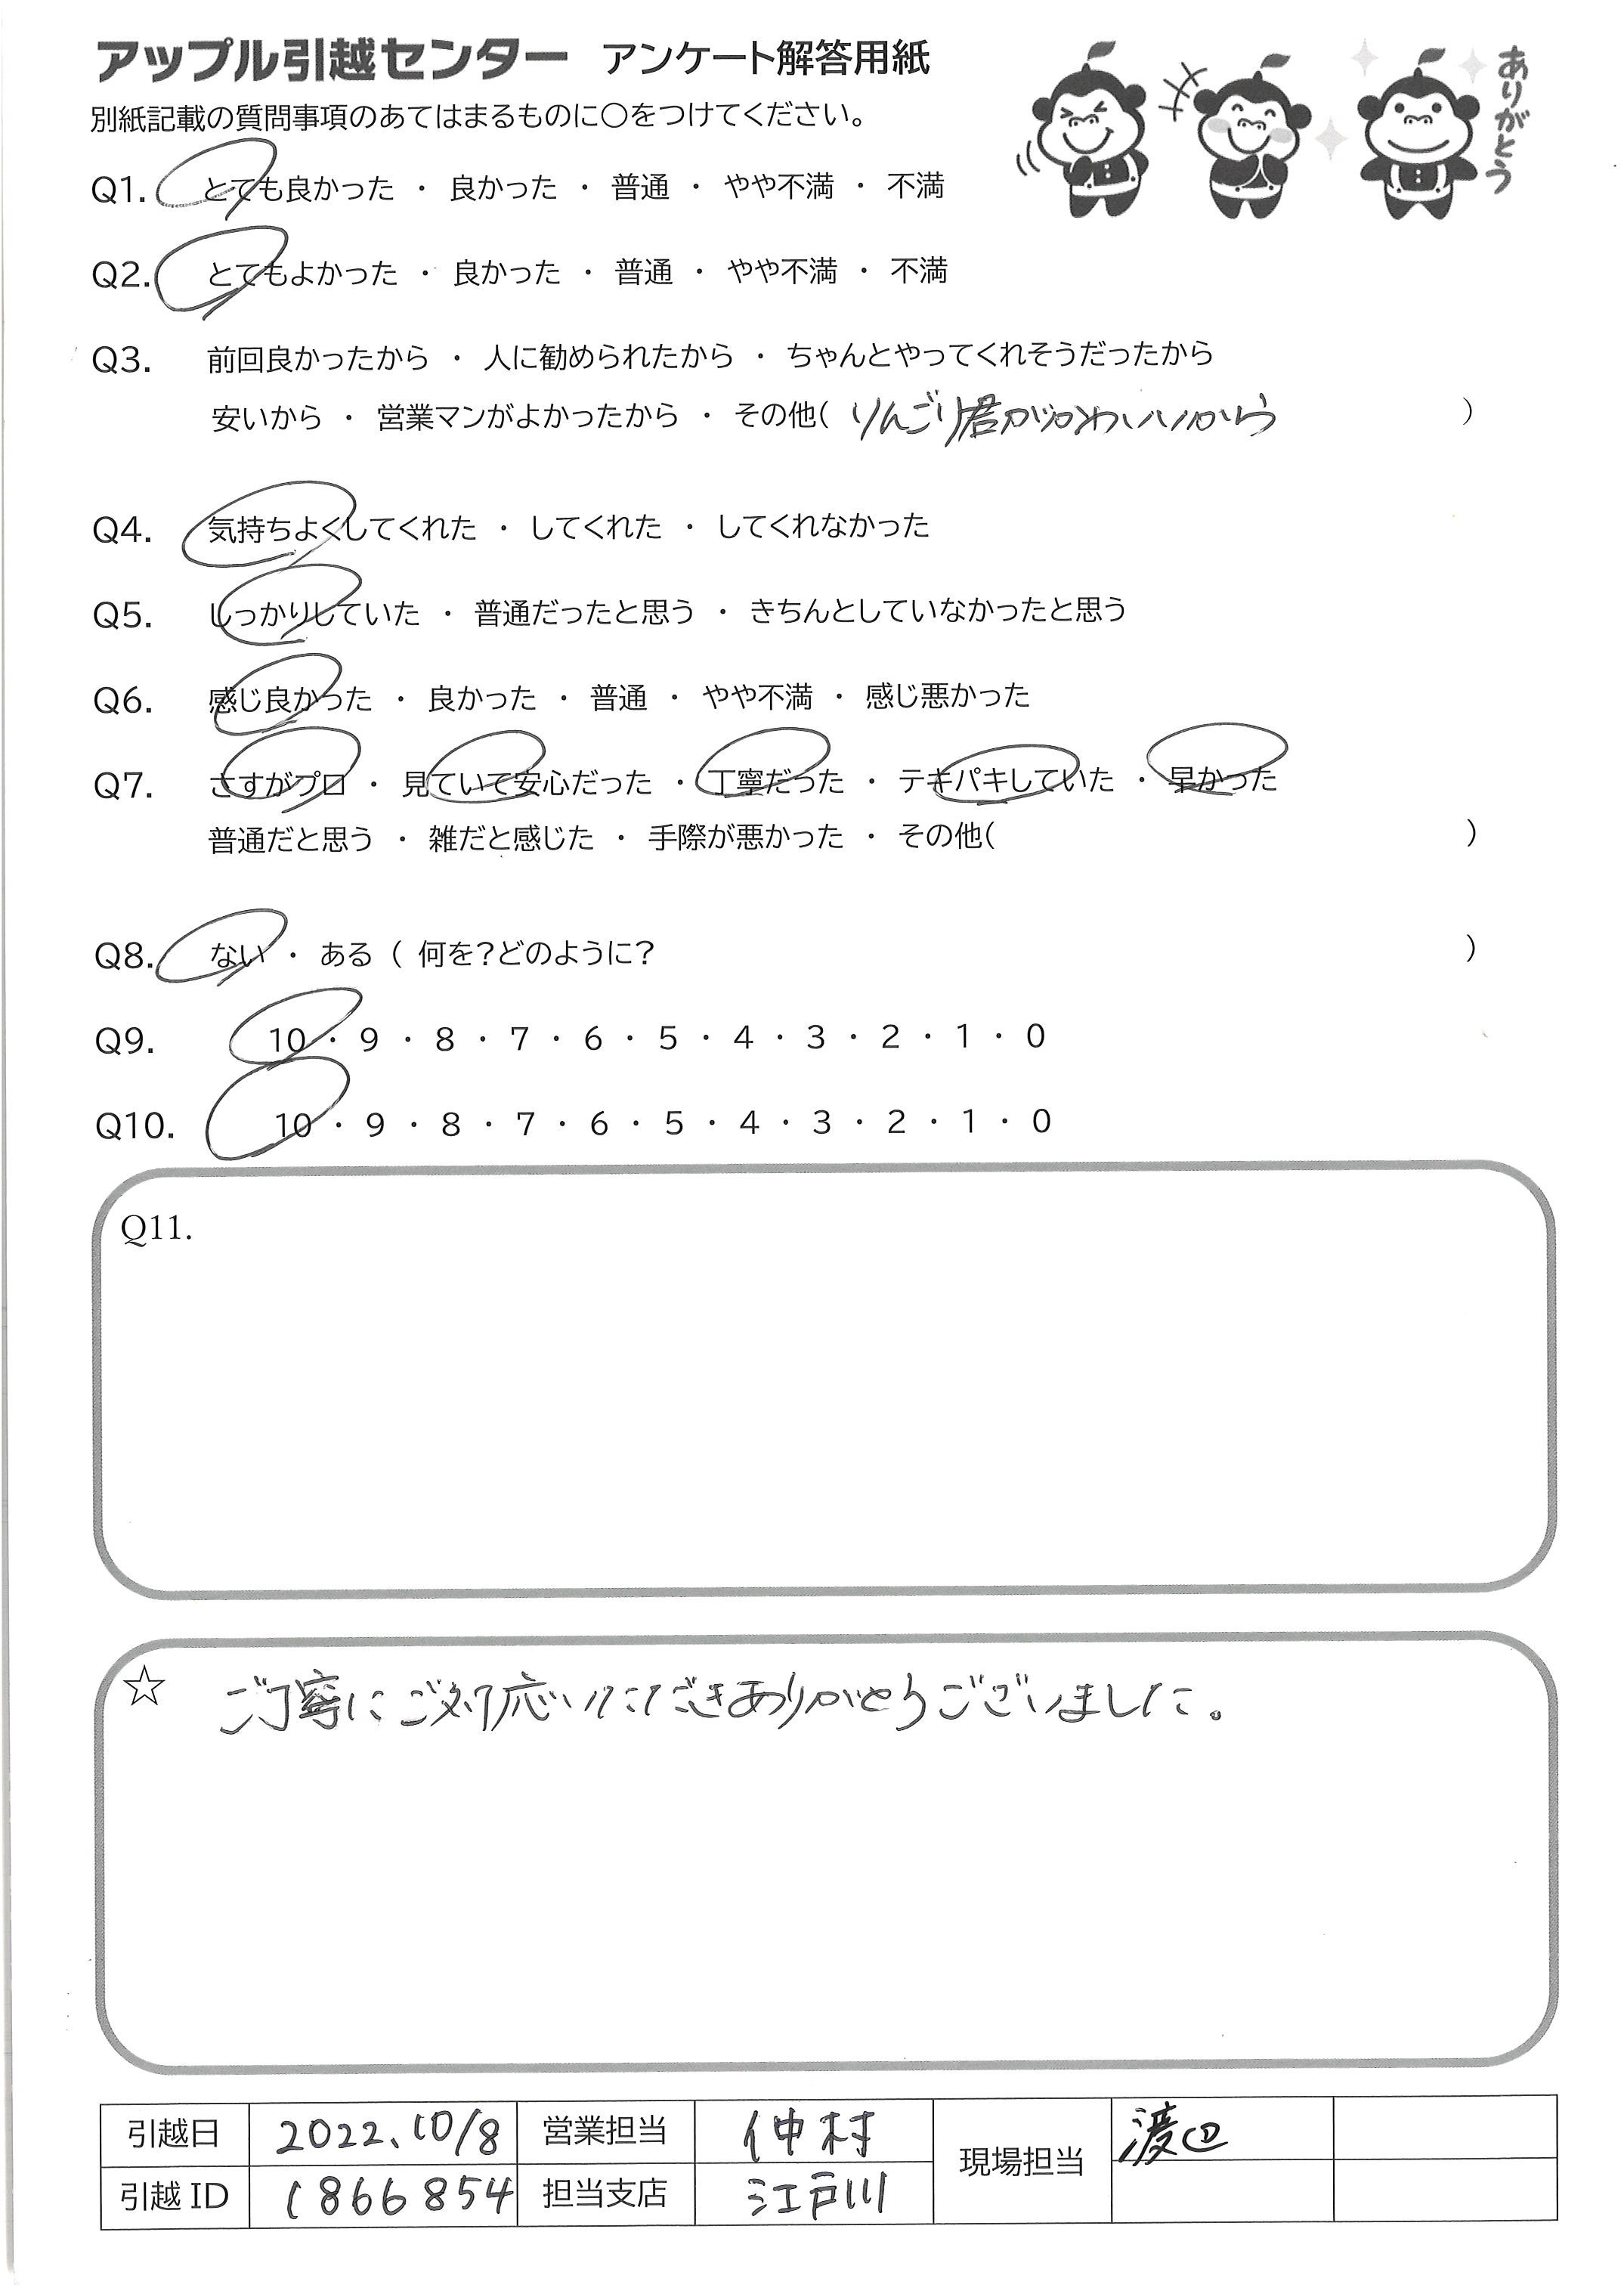 アップル引越センター アンケート解答用紙
別紙記載の質問事項のあてはまるものに〇をつけてください。
ありがとう
Q1. とても良かった ・ 良かった ・ 普通 ・ やや不満 ・ 不満
Q2. とてもよかった ・ 良かった ・ 普通 ・ やや不満 ・ 不満
Q3. 前回良かったから ・ 人に勧められたから ・ ちゃんとやってくれそうだったから
安いから ・ 営業マンがよかったから ・ その他( りんごり君がかわいいから )
Q4. 気持ちよくしてくれた ・ してくれた ・ してくれなかった
Q5. しっかりしていた ・ 普通だったと思う ・ きちんとしていなかったと思う
Q6. 感じ良かった ・ 良かった ・ 普通 ・ やや不満 ・ 感じ悪かった
Q7. さすがプロ ・ 見ていて安心だった ・ 丁寧だった ・ テキパキしていた ・ 早かった
普通だと思う ・ 雑だと感じた ・ 手際が悪かった ・ その他( )
Q8. ない ・ ある ( 何を?どのように? )
Q9. 10 ・ 9 ・ 8 ・ 7 ・ 6 ・ 5 ・ 4 ・ 3 ・ 2 ・ 1 ・ 0
Q10. 10 ・ 9 ・ 8 ・ 7 ・ 6 ・ 5 ・ 4 ・ 3 ・ 2 ・ 1 ・ 0
Q11.
☆ ご丁寧にご対応いただきありがとうございました。
引越日 2022、10/8 営業担当 仲村 現場担当 渡辺
引越ID 1866854 担当支店 江戸川